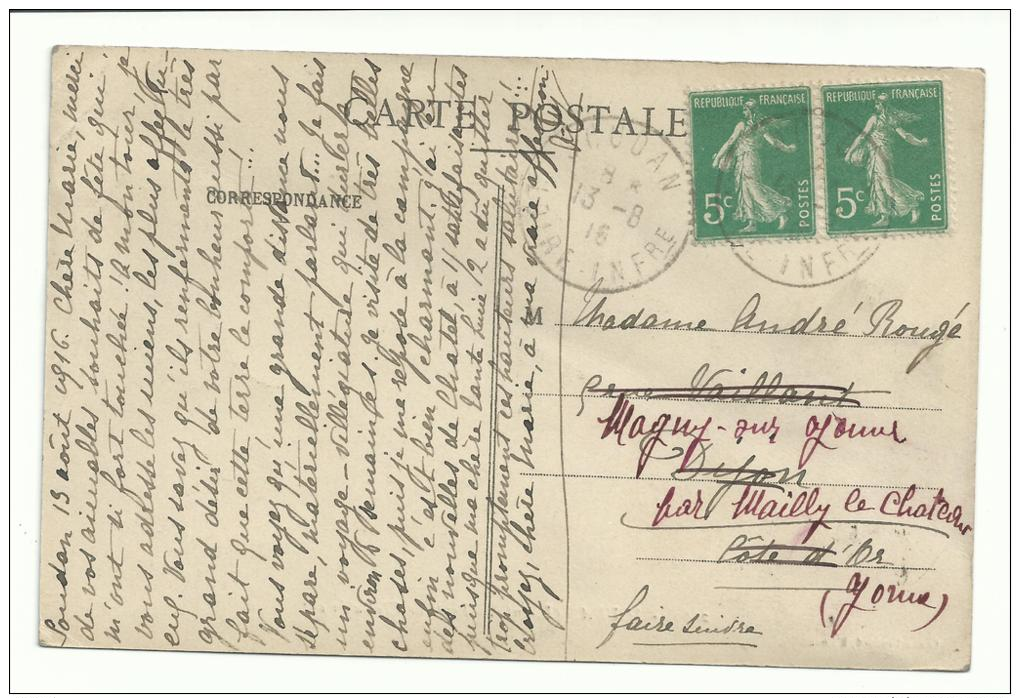 CARTE POSTALE
CORRESPONDANCE
Soudan 13 août 1916. Chère Marie, merci
de vos aimables souhaits de fête qui
m'ont si fort touchée. À mon tour, je
vous adresse les miens, les plus affectu-
eux. Vous savez qu'ils renferment le très
grand désir de votre bonheur aussi parfait
que cette terre le comporte!...
Vous voyez qu'une grande distance nous
sépare, matériellement parlant... Je fais
un voyage-villégiature qui durera
environ semaines je visite de très belles
choses, puis je me repose à la campagne
enfin c'est bien charmant, j'ai eu
des nouvelles de Chatel, satisfaisantes
puisque ma chère Tante Luie a du quitter
trop promptement ces hauteurs salutaires!...
Croyez, chère Marie, à ma vraie affection
SOUDAN
8 *
13 -8
16
LOIRE-INFRE
REPUBLIQUE FRANÇAISE
5c
POSTES
REPUBLIQUE FRANÇAISE
5c
POSTES
INFRE
M Madame André Rougé
Vaillant
Magny-sur Yonne
Dijon
par Mailly le Chateau
Côte d'Or
(Yonne)
faire suivre